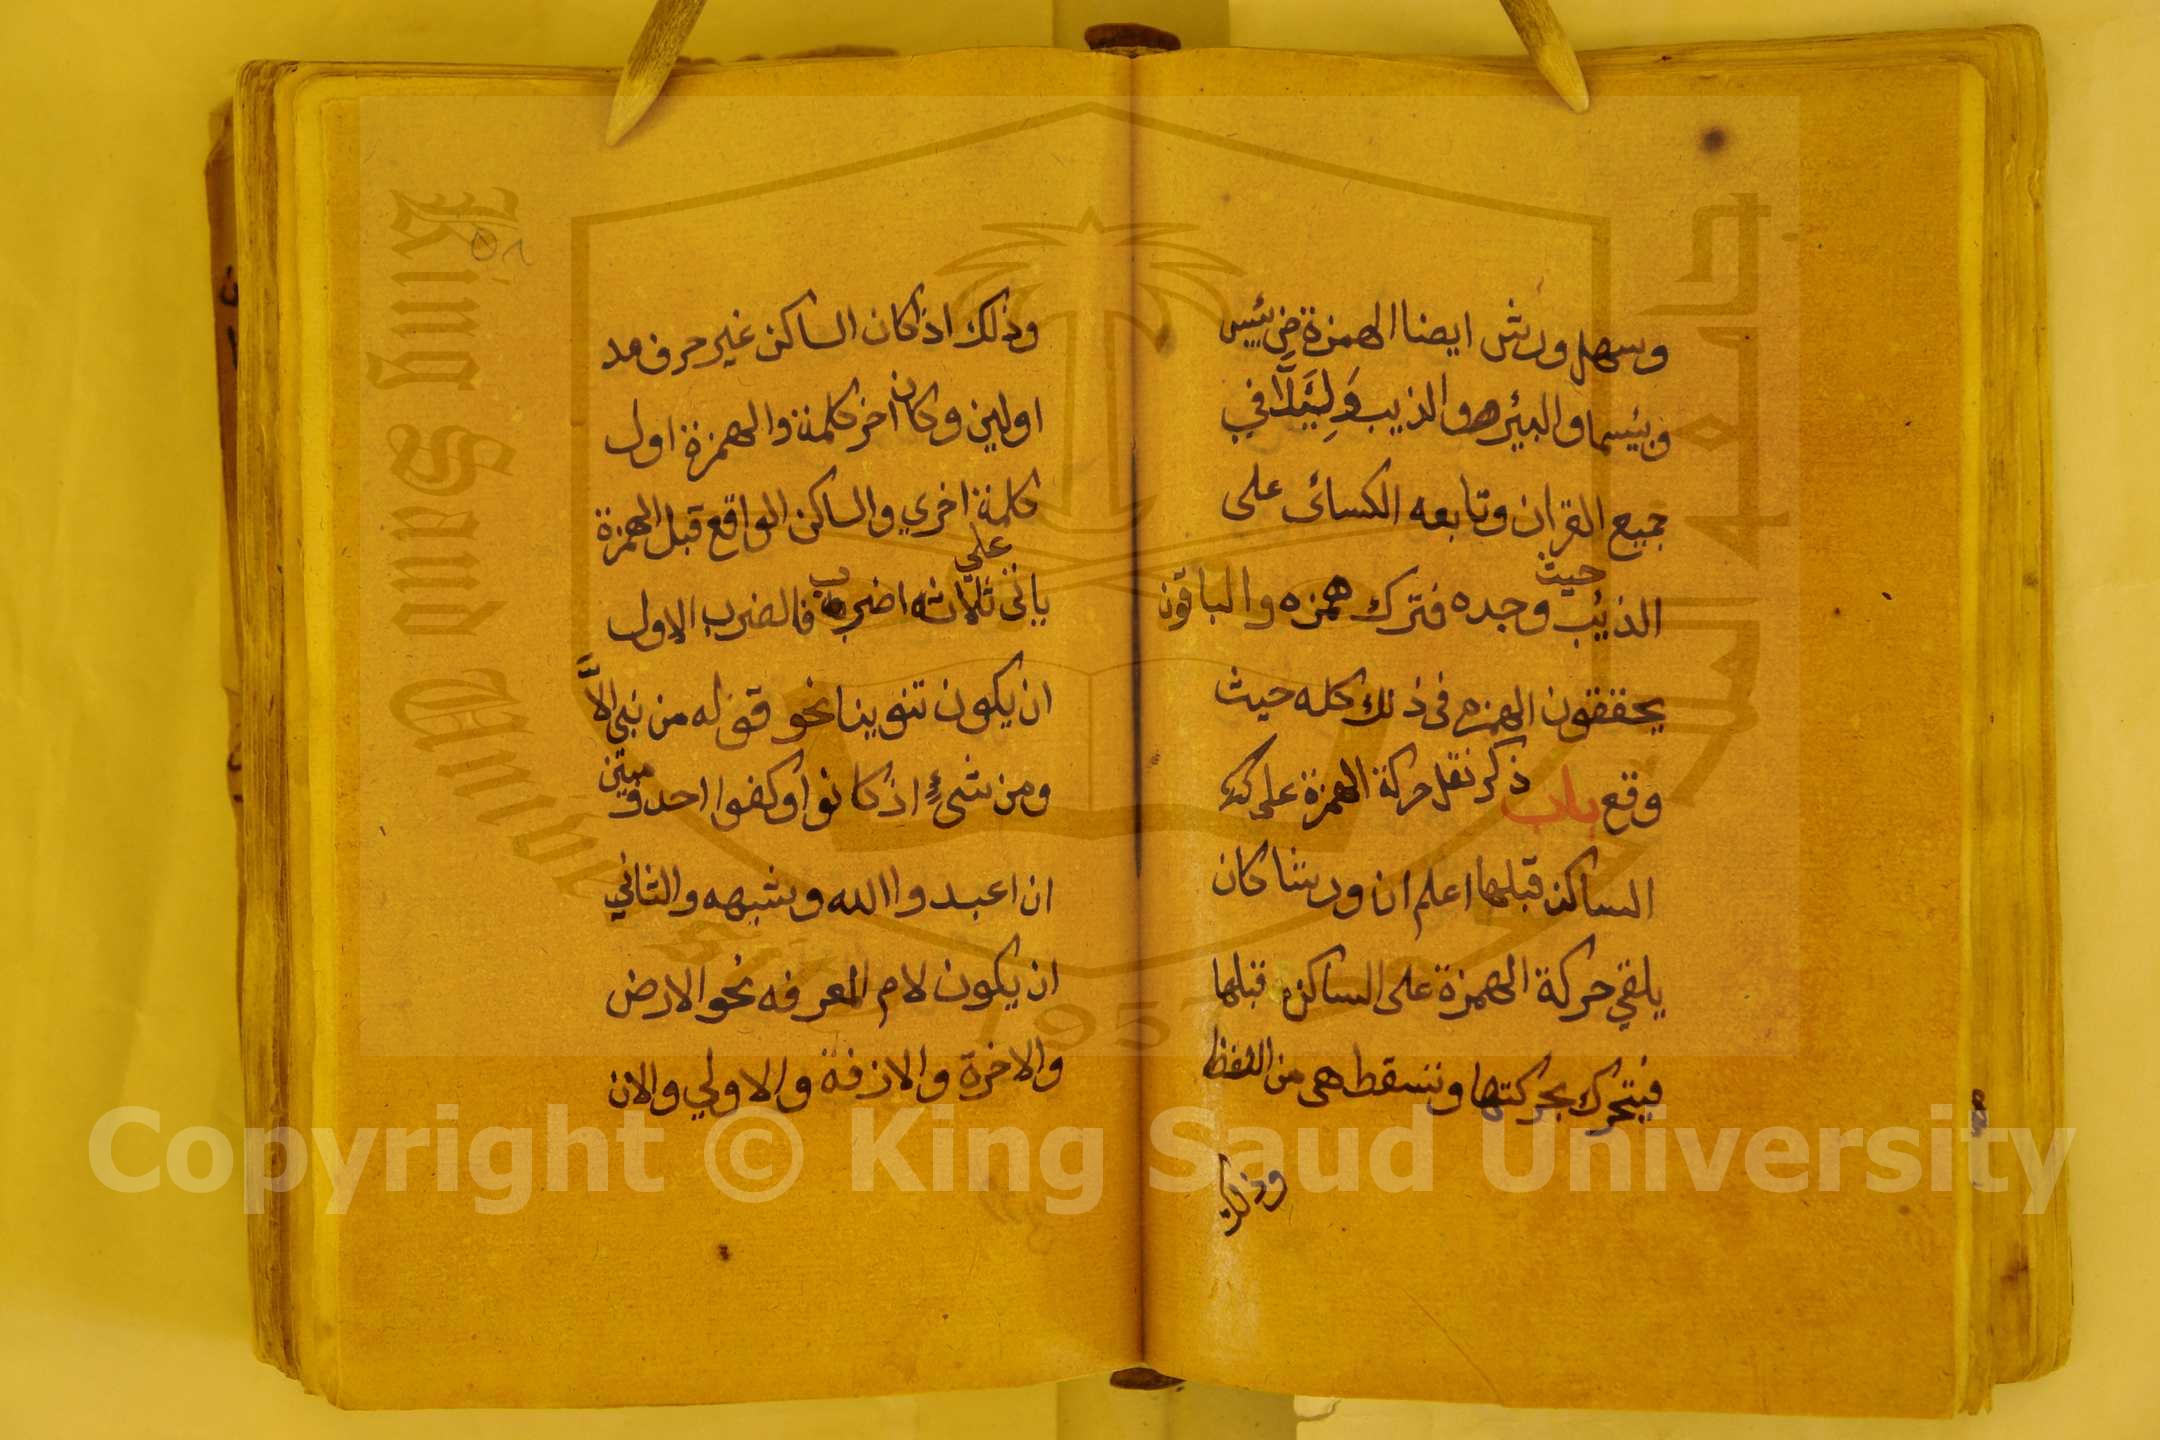 وسهل ورش ايضا الهمزة من بئيس
وبئيسما والبئر هو والذيب وَلِئَيلَّا في
جميع القران وتابعه الكسائى على
الذئب حيث وجده فترك همزه والباقون
يحققون الهمزه فى ذلك كله حيث
وقع باب ذكر نقل حركة الهمزة على
الساكن قبلها اعلم ان ورشا كان
يلقي حركة الهمزة على الساكن قبلها
فيتحرك بحركتها وتسقط هى من اللفظ
وذلك
٥٨
وذلك اذا كان الساكن غير حرف مد
اولين وكان اخر كلمة والهمزة اول
كلمة اخري والساكن الواقع قبل الهمزة
ياتى على ثلاثه اضرب فالضرب الاول
ان يكون تنوينا نحو قوله من نبي الاَّ
ومن شيءٍ اذ كانوا وكفوا احد ومبين
ان اعبدوا الله وشبهه والثاني
ان يكون لام المعرفه نحو الارض
والاخرة والازفة والاولي والان
King Saud University
جامعة الملك سعود
1957
Copyright © King Saud University